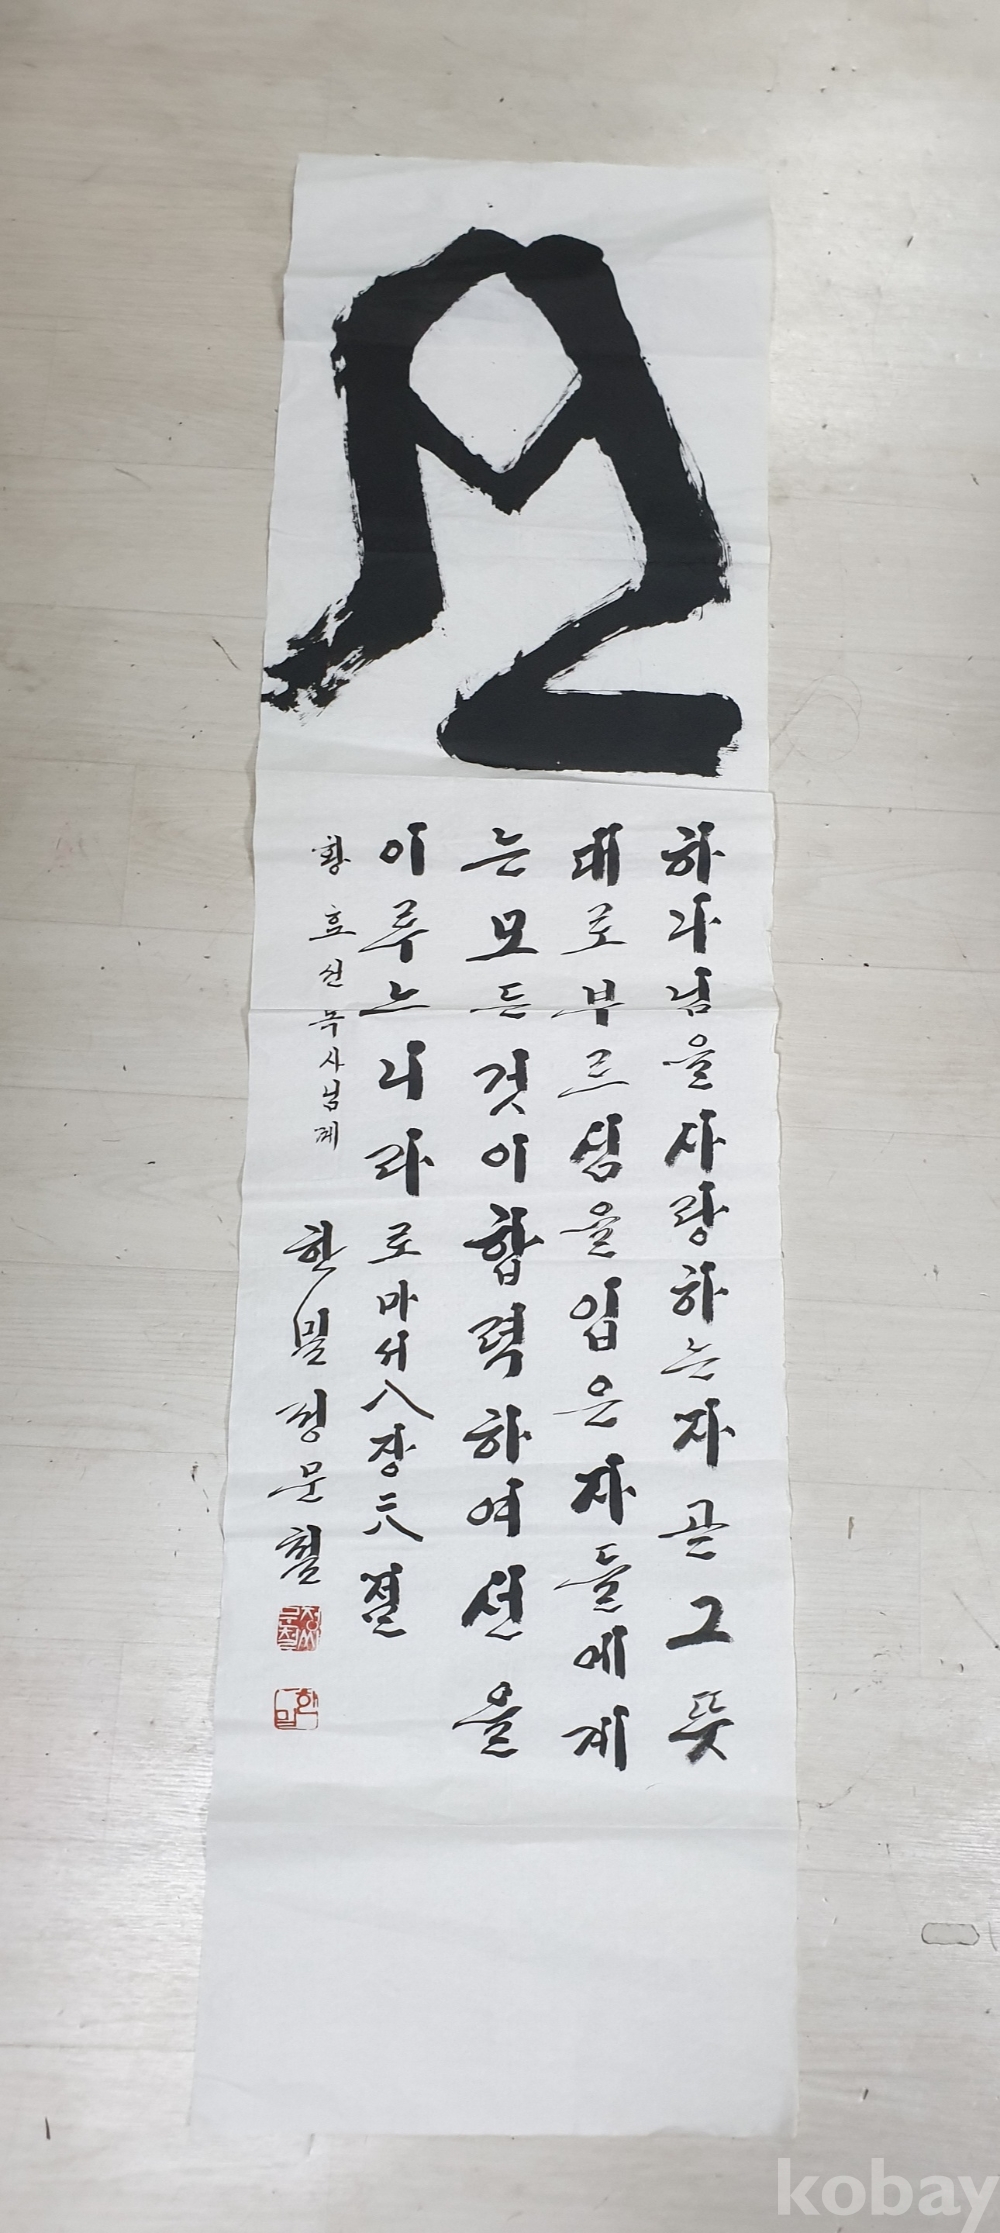 하나님을사랑하는자곧그뜻
대로부르심을입은자들에게
는모든것이합력하여선을
이루느니라로마서八장二八절
황효신목사님께
한밀정문철
정씨문철
한밀
kobay